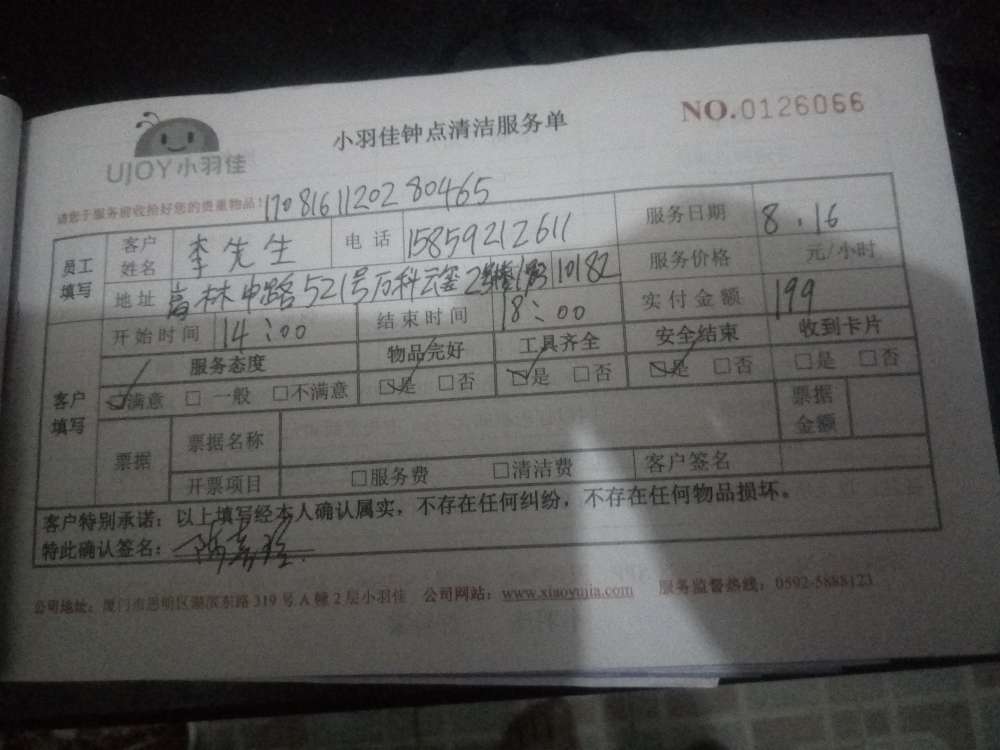 NO.0126066
小羽佳钟点清洁服务单
UJOY小羽佳
请您于服务前收拾好您的贵重物品! 17081611202 80465
员工填写 客户姓名 李先生 电话 15859212611 服务日期 8.16
地址 林中路521号万科云玺 10182 服务价格 元/小时
开始时间 14:00 结束时间 18:00 实付金额 199
客户填写 服务态度 物品完好 工具齐全 安全结束 收到卡片
☑满意 □ 一般 □不满意 ☑是 □否 ☑是 □否 ☑是 □否 □是 □否
票据 票据名称 票据金额
开票项目 □服务费 □清洁费 客户签名
客户特别承诺：以上填写经本人确认属实，不存在任何纠纷，不存在任何物品损坏。
特此确认签名：
公司地址：厦门市思明区湖滨东路319号A幢2层小羽佳 公司网站：www.xiaoyujia.com 服务监督热线：0592-5888123